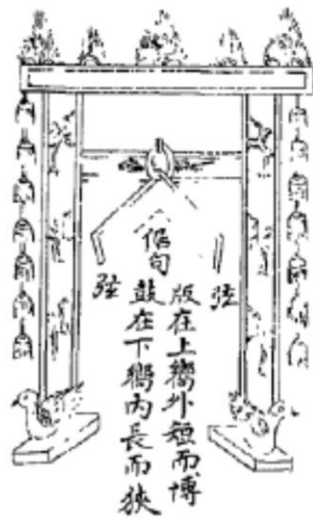 弦
股在上嚮外短而博
倨句
鼓在下嚮內長而狹
弦